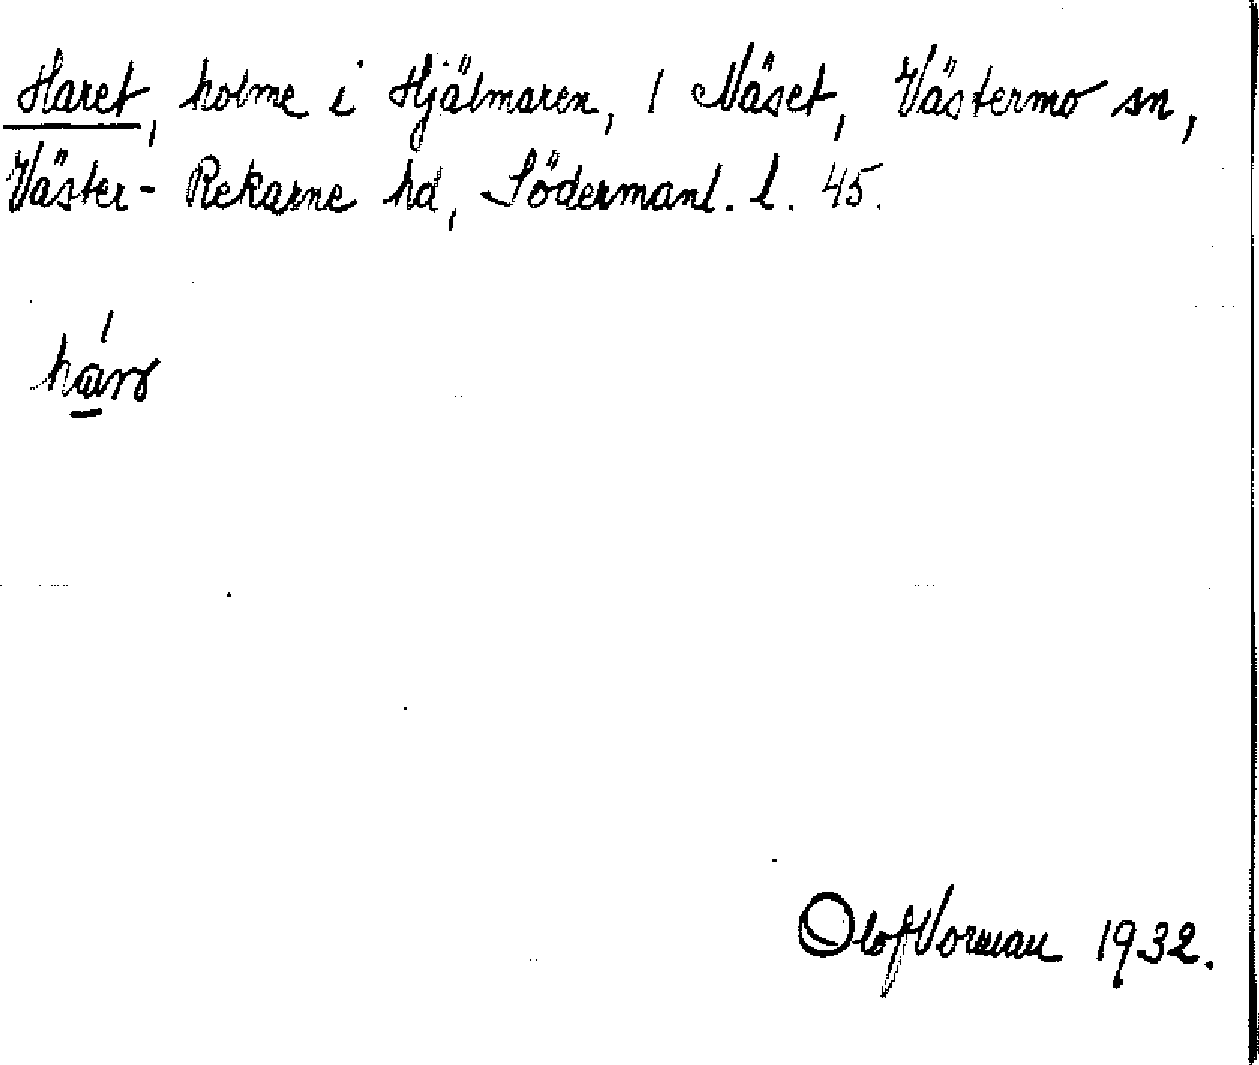 Haret, holme i Hjälmaren, 1 Näset, Västermo sn,
Väster-Rekarne hd, Södermanl. l. 45.
Olof Norman 1932.